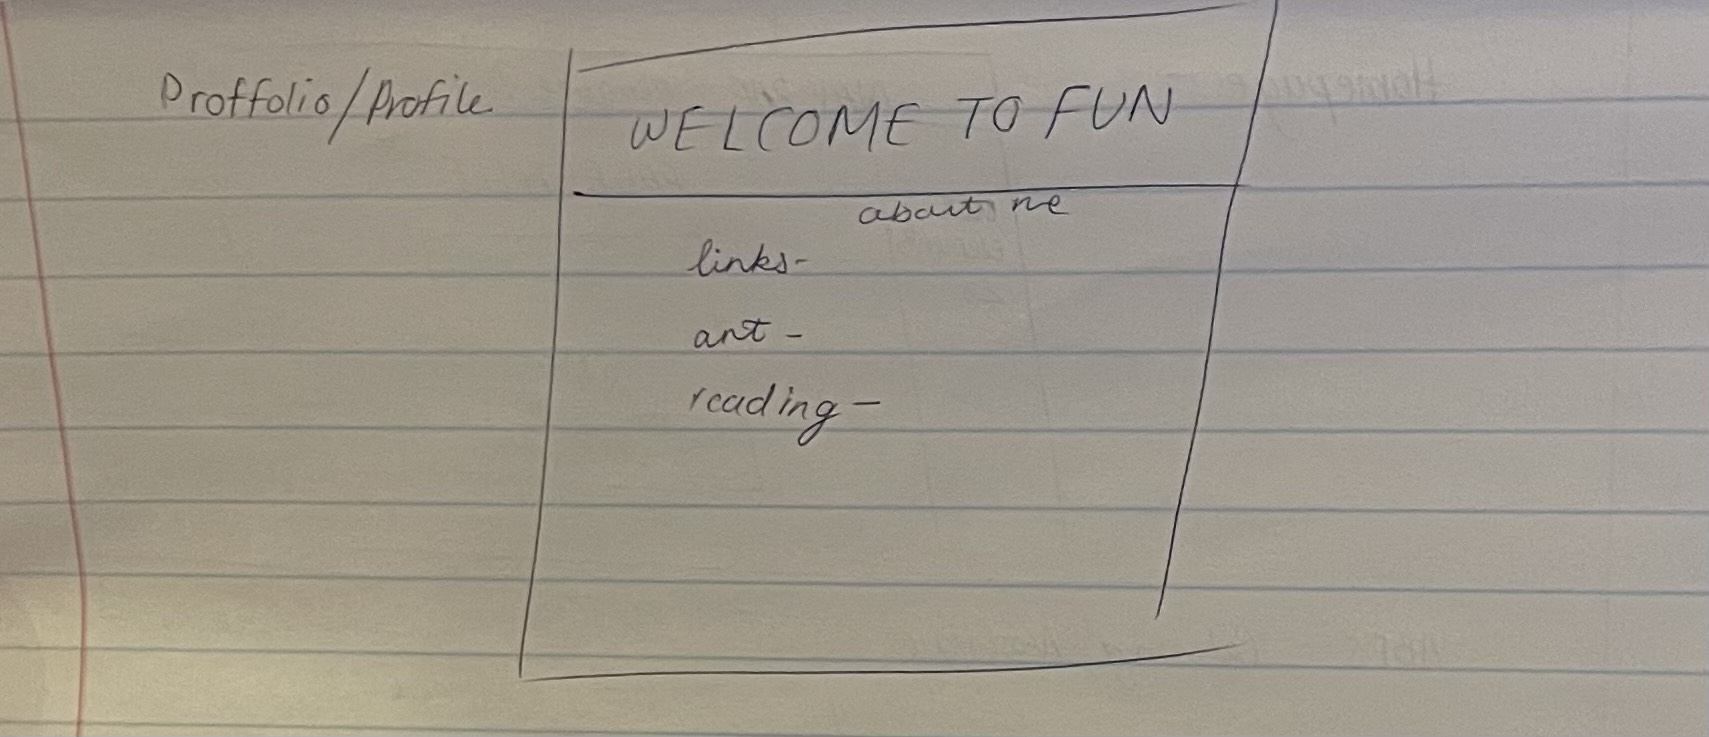 Proffolio/Profile
WELCOME TO FUN
about me
links-
art -
reading -